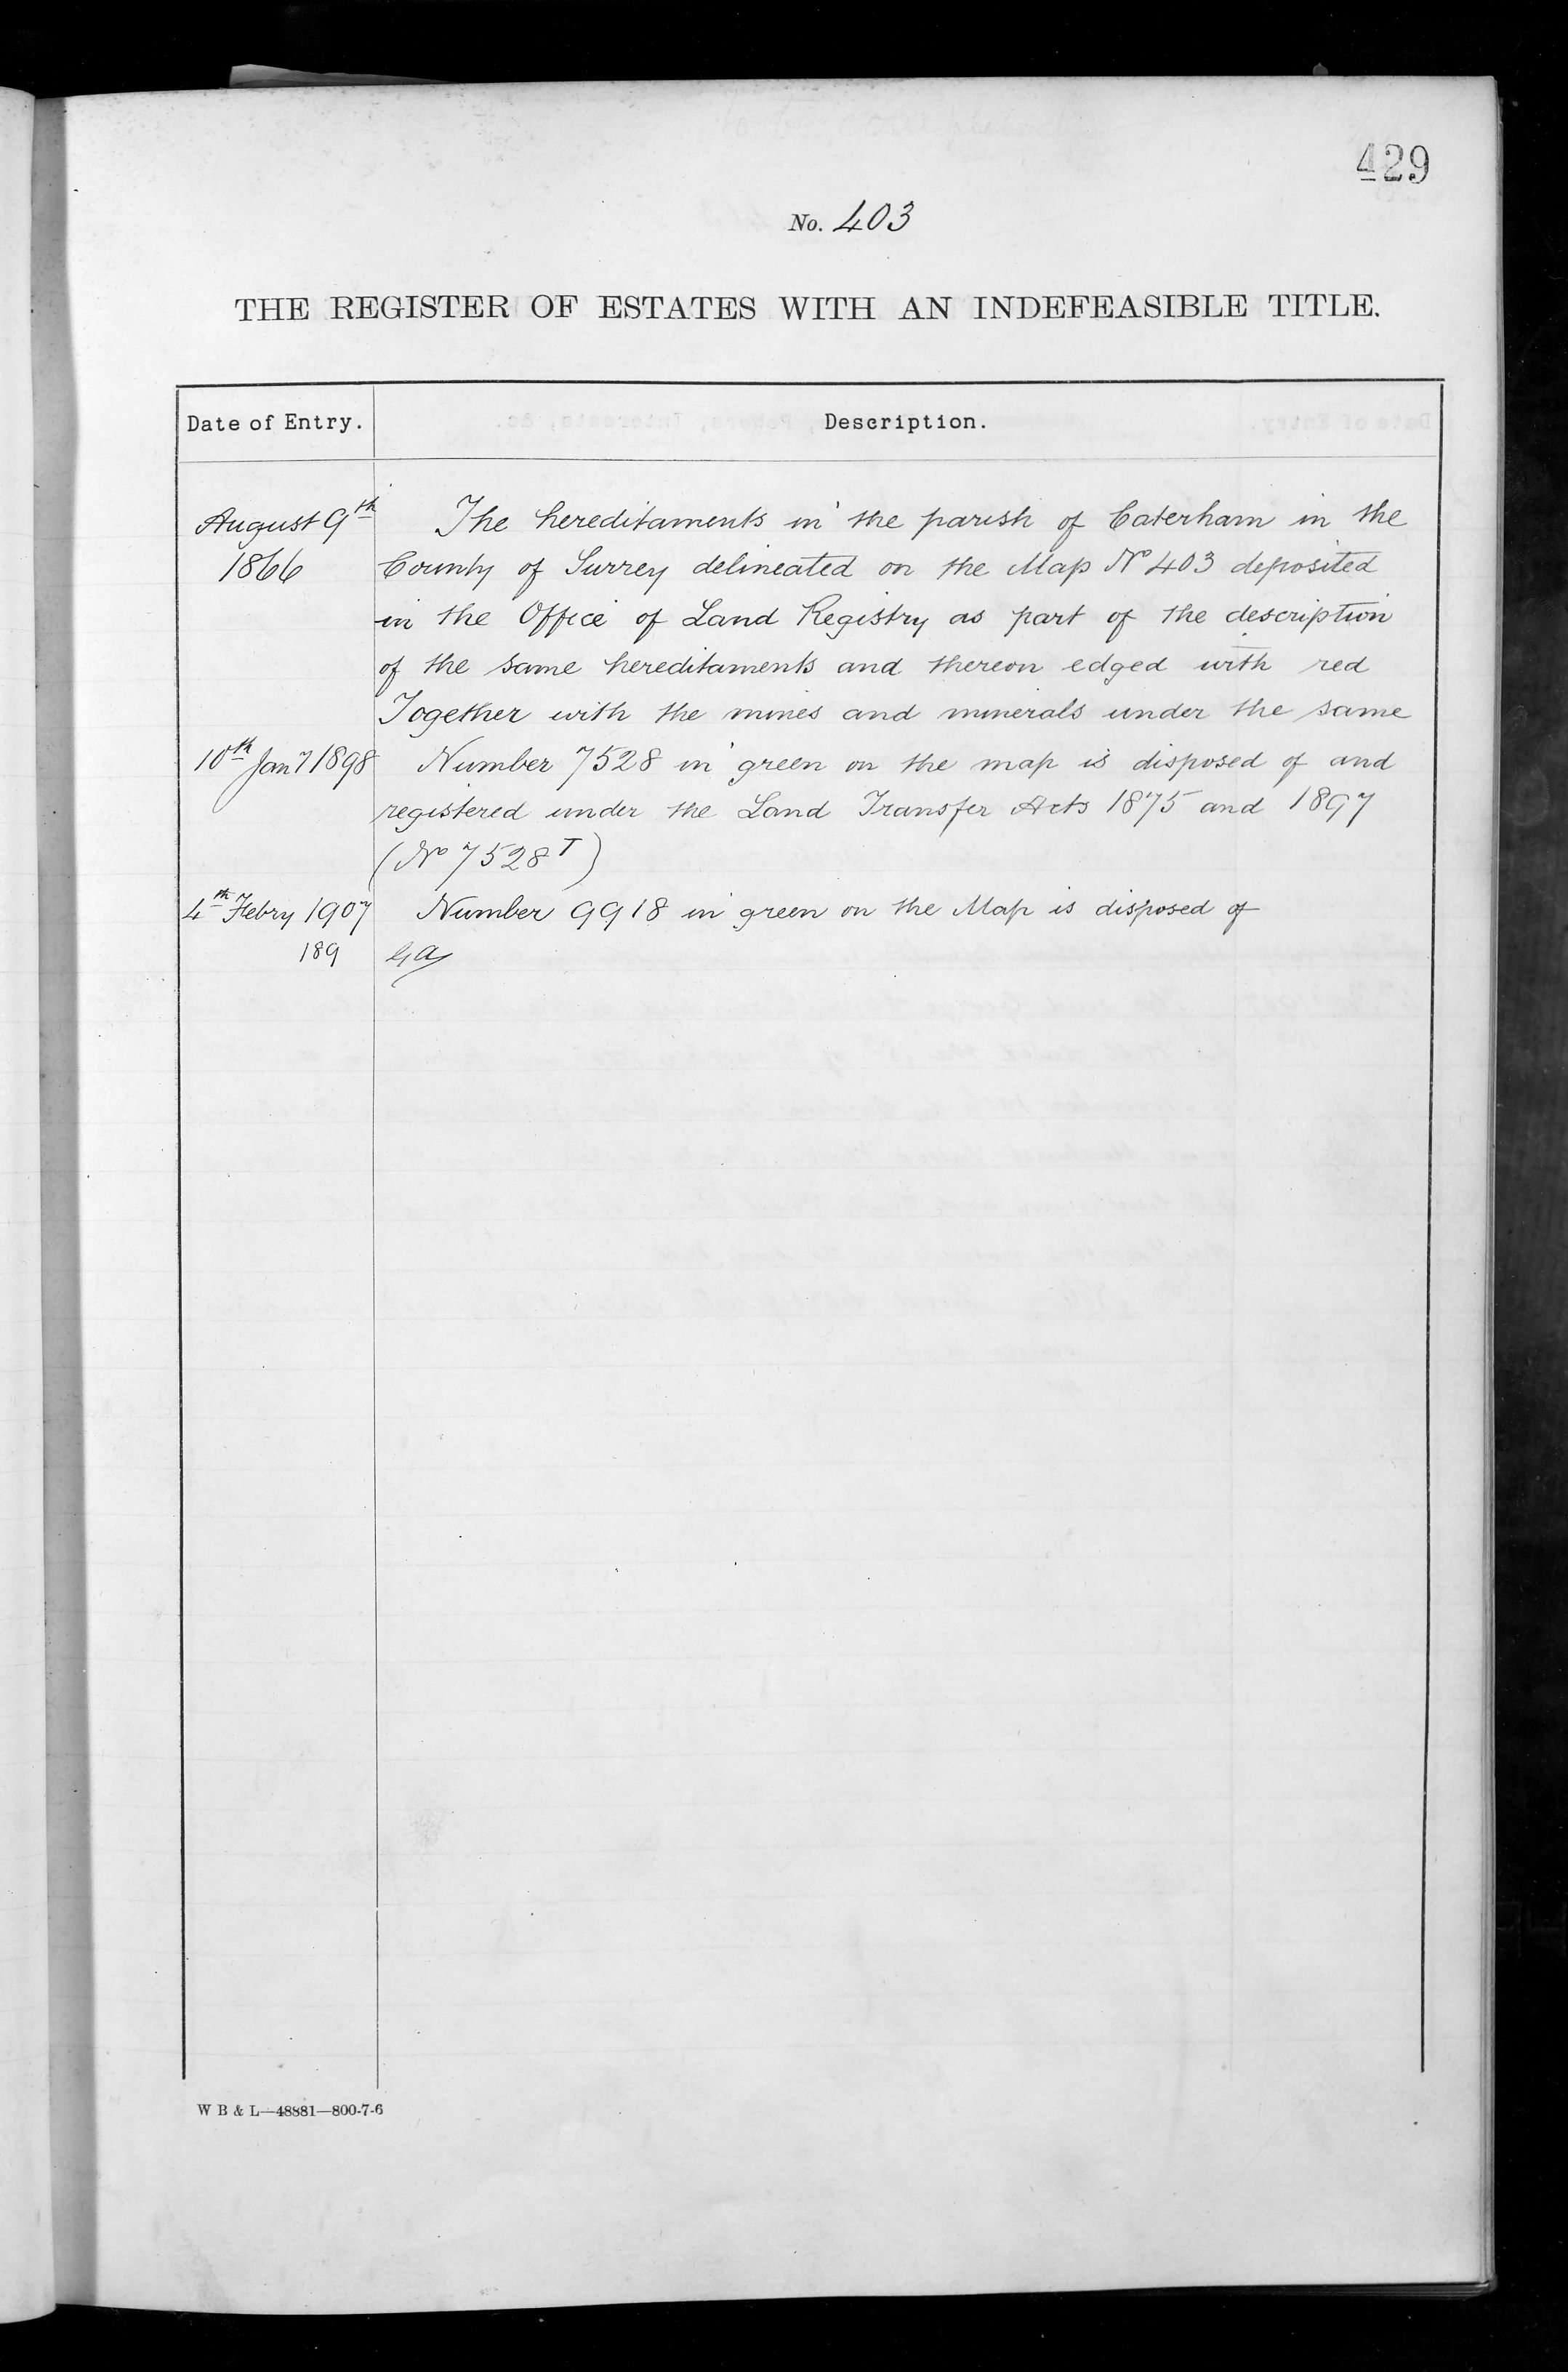 429
No. 403
THE REGISTER OF ESTATES WITH AN INDEFEASIBLE TITLE.
Date of Entry. Description.
August 9th The hereditaments in the parish of Caterham in the
1866 County of Surrey delineated on the Map No 403 deposited
in the Office of Land Registry as part of the description
of the same hereditaments and thereon edged with red
Together with the mines and minerals under the same
10th Jany 1898 Number 7528 in green on the map is disposed of and
registered under the Land Transfer Acts 1875 and 1897
(No 7528 T)
4th Febry 1907 Number 9918 in green on the Map is disposed of
189
W B & L—48881—800-7-6